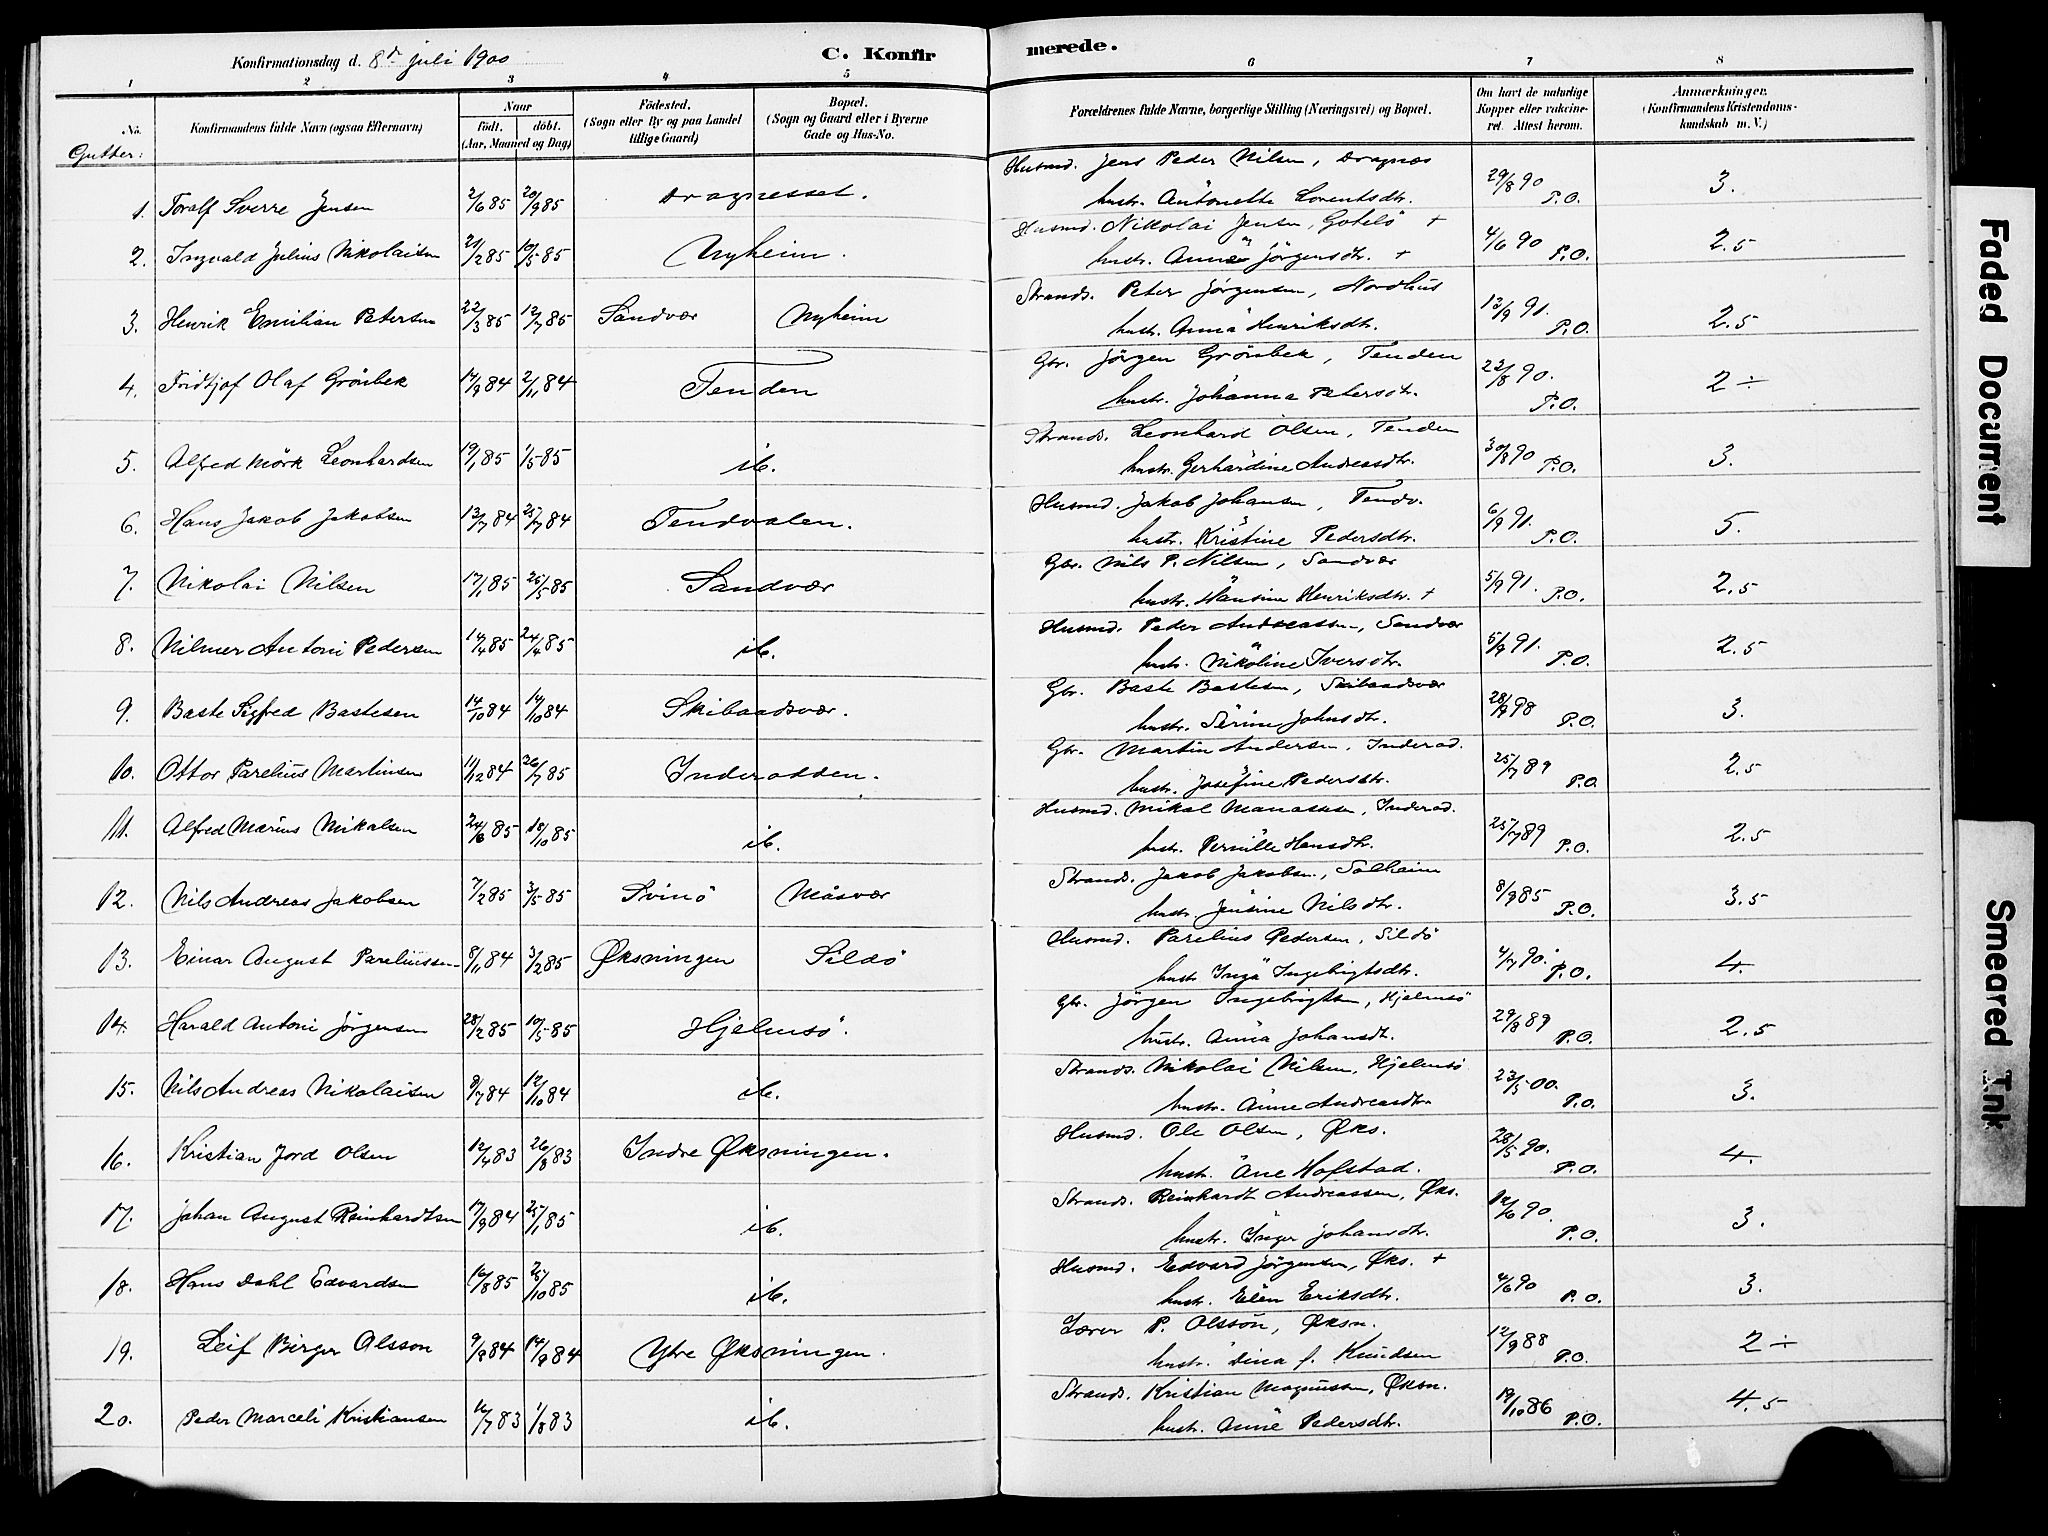 Konfirmationsdag d. 8de juli 1900
C. Konfirmerede.
1 2 3 4 5 6 7 8
No. Konfirmandens fulde Navn (ogsaa Efternavn) Naar født. døbt. (Aar, Maaned og Dag) Fødested. (Sogn eller By og paa Landet tillige Gaard) Bopæl. (Sogn og Gaard eller i Byerne Gade og Hus-No. Forældrenes fulde Navne, borgerlige Stilling (Næringsvei) og Bopæl. Om havt de naturlige Kopper eller vakcineret. Attest herom. Anmærkninger. (Konfirmandens Kristendomskundskab m. V.)
Gutter:
1. Toralf Sverre Jensen 2/6 85 20/9 85 Dragnesset. Husmd. Jens Peder Nilsen, Dragnæs 29/8 90 P.O. 3.
hustr. Antonette Lorentsdtr.
2. Ingvald Julius Nikolaisen 21/2 85 10/5 85 Nyheim. Husmd. Nikolai Jensen, Gotelö + 4/6 90 P.O. 2.5
hustr. Anne Jörgensdtr. +
3. Henrik Emilian Petersen 22/3 85 12/7 85 Sandvær Nyheim Strands. Peter Jörgensen, Nordhus 12/9 91. P.O. 2.5
hustr. Anna Henriksdtr.
4. Fridtjof Olaf Grönbek 14/9 84 2/11 84 Tenden Gbr. Jörgen Grönbek, Tenden 22/8 90. P.O. 2 ÷
hustr. Johanna Petersdtr.
5. Alfred Mörk Leonhardsen 19/1 85 1/5 85 ib. Strands. Leonhard Olsen, Tenden 30/8 90 P.O. 3.
hustr. Gerhardine Andreasdtr.
6. Hans Jakob Jakobsen 13/7 84 27/7 84 Tendvalen. Husmd. Jakob Johansen, Tendv. 6/9 91. P.O. 5.
hustr. Kristine Pedersdtr.
7. Nikolai Nilsen 17/1 85 25/5 85 Sandvær Gbr. Nils P. Nilsen, Sandvær 5/9 91. P.O. 2.5
hustr. Hansine Henriksdtr. +
8. Nilmer Antoni Pedersen 14/4 85 24/4 85 ib. Husmd. Peder Andreassen, Sandvær 5/9 91. P.O. 2.5
hustr. Nikoline Iversdtr.
9. Baste Sigfred Bastesen 14/10 84 19/10 84 Skibaadsvær. Gbr. Baste Bastesen, Skibaadsvær 28/9 98 P.O. 3.
hustr. Serine Johnsdtr.
10. Ottor Parelius Martinsen 11/12 84 26/7 85 Inderodden. Gbr. Martin Andersen, Inderod. 25/7 89 P.O. 2.5
hustr. Josefine Pedersdtr.
11. Alfred Marius Mikalsen 24/8 85 18/10 85 ib. Husmd. Mikal Manassen, Inderod. 25/7 89 P.O. 2.5
hustr. Pernille Hansdtr.
12. Nils Andreas Jakobsen 7/2 85 3/5 85 Svinö Måsvær Strands. Jakob Jakobsen, Solheim 8/9 85 P.O. 3.5
hustr. Jensine Nilsdtr.
13. Einar August Pareliussen 8/11 84 3/2 85 Øksningen Sildö Husmd. Parelius Pedersen, Sildö 4/7 90. P.O. 4.
hustr. Inga Ingebrigtsdtr.
14. Harald Antoni Jörgensen 28/2 85 10/5 85 Hjelmsö. Gbr. Jörgen Ingebrigtsen, Hjelmsö 29/8 89 P.O. 2.5
hustr. Anna Johansdtr.
15. Nils Andreas Nikolaisen 9/7 84 12/10 84 ib. Strands. Nikolai Nilsen, Hjelmsö 23/5 00. P.O. 3.
hustr. Anne Andreasdtr.
16. Kristian Jord Olsen 12/4 83 26/8 83 Indre Øksningen. Husmd. Ole Olsen, Øks. 28/5 90. P.O. 4.
hustr. Ane Hofstad.
17. Johan August Reinhardtsen 17/9 84 25/1 85 ib. Strands. Reinhardt Andreassen, Øks. 12/6 90. P.O. 3.
hustr. Inger Johansdtr.
18. Hans Dahl Edvardsen 16/8 85 25/10 85 ib. Husmd. Edvard Jörgensen, Øks. + 4/6 90 P.O. 3.
hustr. Elen Eriksdtr.
19. Leif Birger Olsson 9/8 84 14/9 84 Ytre Øksningen. Lærer P. Olsson, Øksn. 12/9 88 P.O. 2 ÷
hustr. Dina f. Knudsen
20. Peder Marceli Kristiansen 16/7 83 1/8 83 ib. Strands. Kristian Magnussen, Øksn. 19/10 86 P.O. 4.5
hustr. Anne Pedersdtr.
Faded Document
Smeared Ink